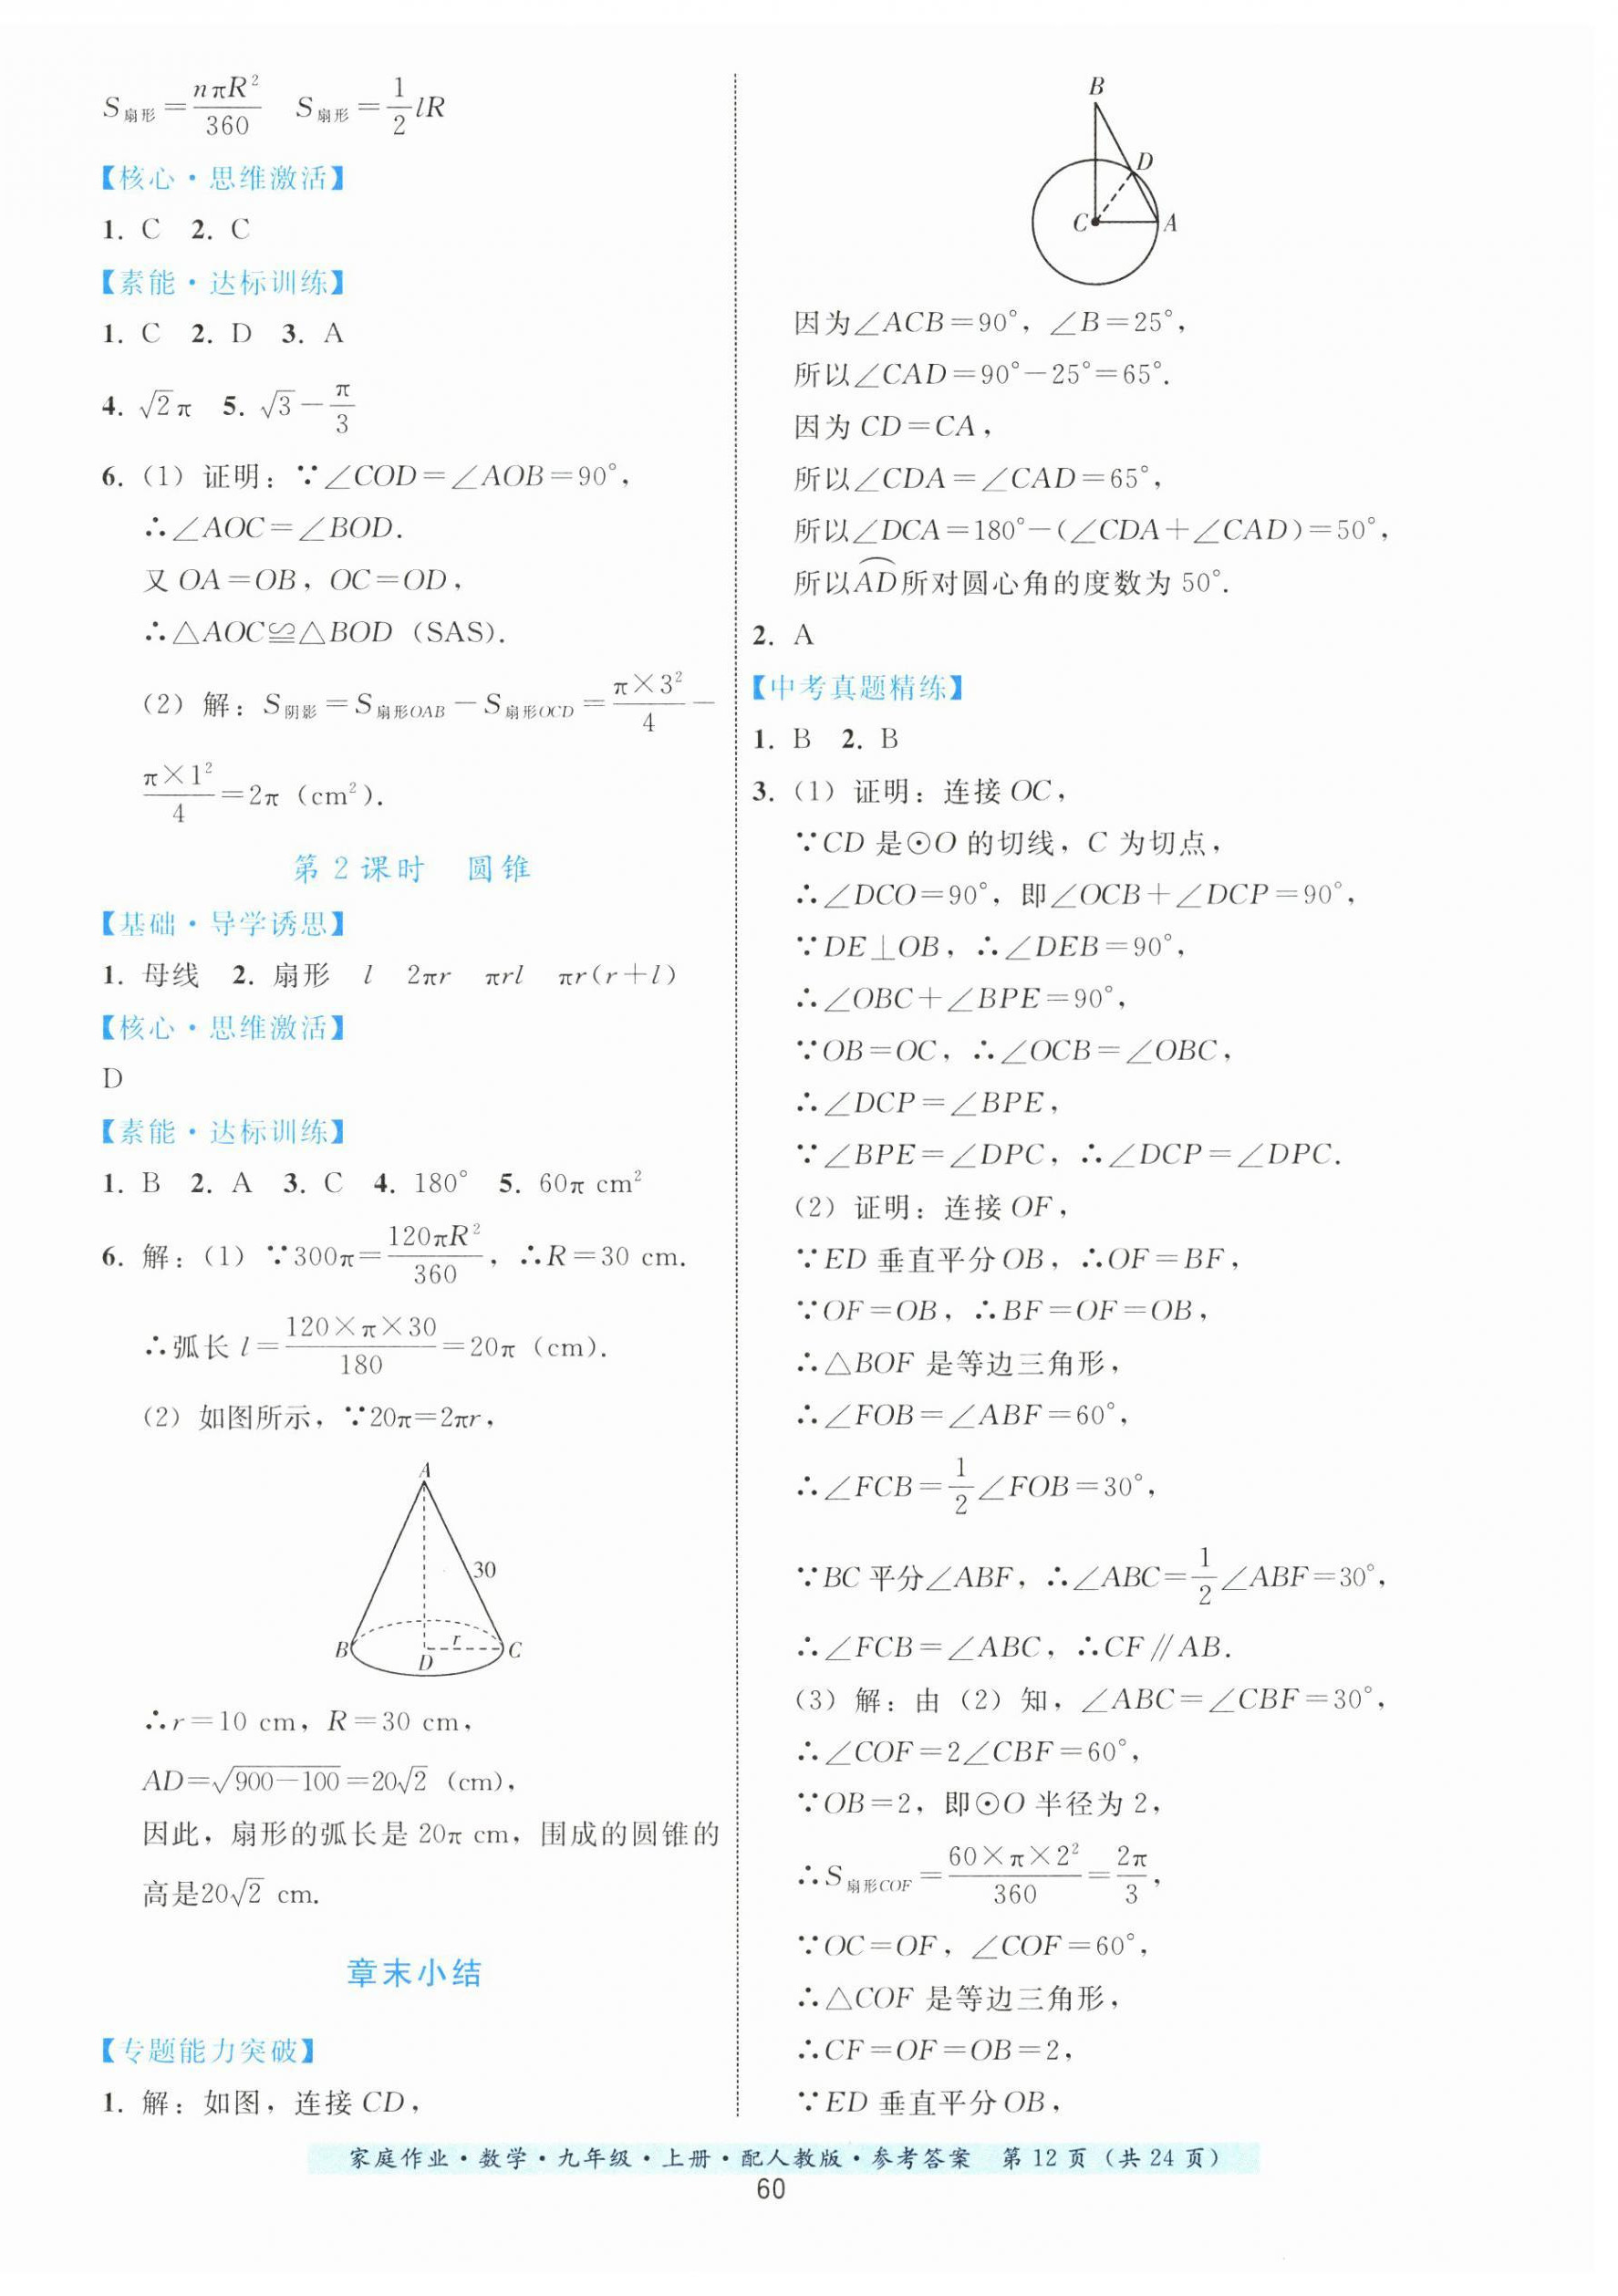 S扇形=nπR²/360 S扇形=1/2 lR
【核心·思维激活】
1. C 2. C
【素能·达标训练】
1. C 2. D 3. A
4. √2π 5. √3－π/3
6. (1) 证明：∵∠COD=∠AOB=90°，
∴∠AOC=∠BOD.
又 OA=OB，OC=OD，
∴△AOC≌△BOD (SAS).
(2) 解：S阴影=S扇形OAB－S扇形OCD=π×3²/4－
π×1²/4=2π (cm²).
第 2 课时 圆锥
【基础·导学诱思】
1. 母线 2. 扇形 l 2πr πrl πr(r+l)
【核心·思维激活】
D
【素能·达标训练】
1. B 2. A 3. C 4. 180° 5. 60π cm²
6. 解：(1) ∵300π=120πR²/360，∴R=30 cm.
∴弧长 l=120×π×30/180=20π (cm).
(2) 如图所示，∵20π=2πr，
A
30
B
r
C
D
∴r=10 cm，R=30 cm，
AD=√(900－100)=20√2 (cm)，
因此，扇形的弧长是 20π cm，围成的圆锥的
高是20√2 cm.
章末小结
【专题能力突破】
1. 解：如图，连接 CD，
B
D
C
A
因为∠ACB=90°，∠B=25°，
所以∠CAD=90°－25°=65°.
因为 CD=CA，
所以∠CDA=∠CAD=65°，
所以∠DCA=180°－(∠CDA+∠CAD)=50°，
所以A͡D所对圆心角的度数为 50°.
2. A
【中考真题精练】
1. B 2. B
3. (1) 证明：连接 OC，
∵CD 是⊙O 的切线，C 为切点，
∴∠DCO=90°，即∠OCB+∠DCP=90°，
∵DE⊥OB，∴∠DEB=90°，
∴∠OBC+∠BPE=90°，
∵OB=OC，∴∠OCB=∠OBC，
∴∠DCP=∠BPE，
∵∠BPE=∠DPC，∴∠DCP=∠DPC.
(2) 证明：连接 OF，
∵ED 垂直平分 OB，∴OF=BF，
∵OF=OB，∴BF=OF=OB，
∴△BOF 是等边三角形，
∴∠FOB=∠ABF=60°，
∴∠FCB=1/2∠FOB=30°，
∵BC 平分∠ABF，∴∠ABC=1/2∠ABF=30°，
∴∠FCB=∠ABC，∴CF∥AB.
(3) 解：由 (2) 知，∠ABC=∠CBF=30°，
∴∠COF=2∠CBF=60°，
∵OB=2，即⊙O 半径为 2，
∴S扇形COF=60×π×2²/360=2π/3，
∵OC=OF，∠COF=60°，
∴△COF 是等边三角形，
∴CF=OF=OB=2，
∵ED 垂直平分 OB，
家庭作业·数学·九年级·上册·配人教版·参考答案 第 12 页（共 24 页）
60